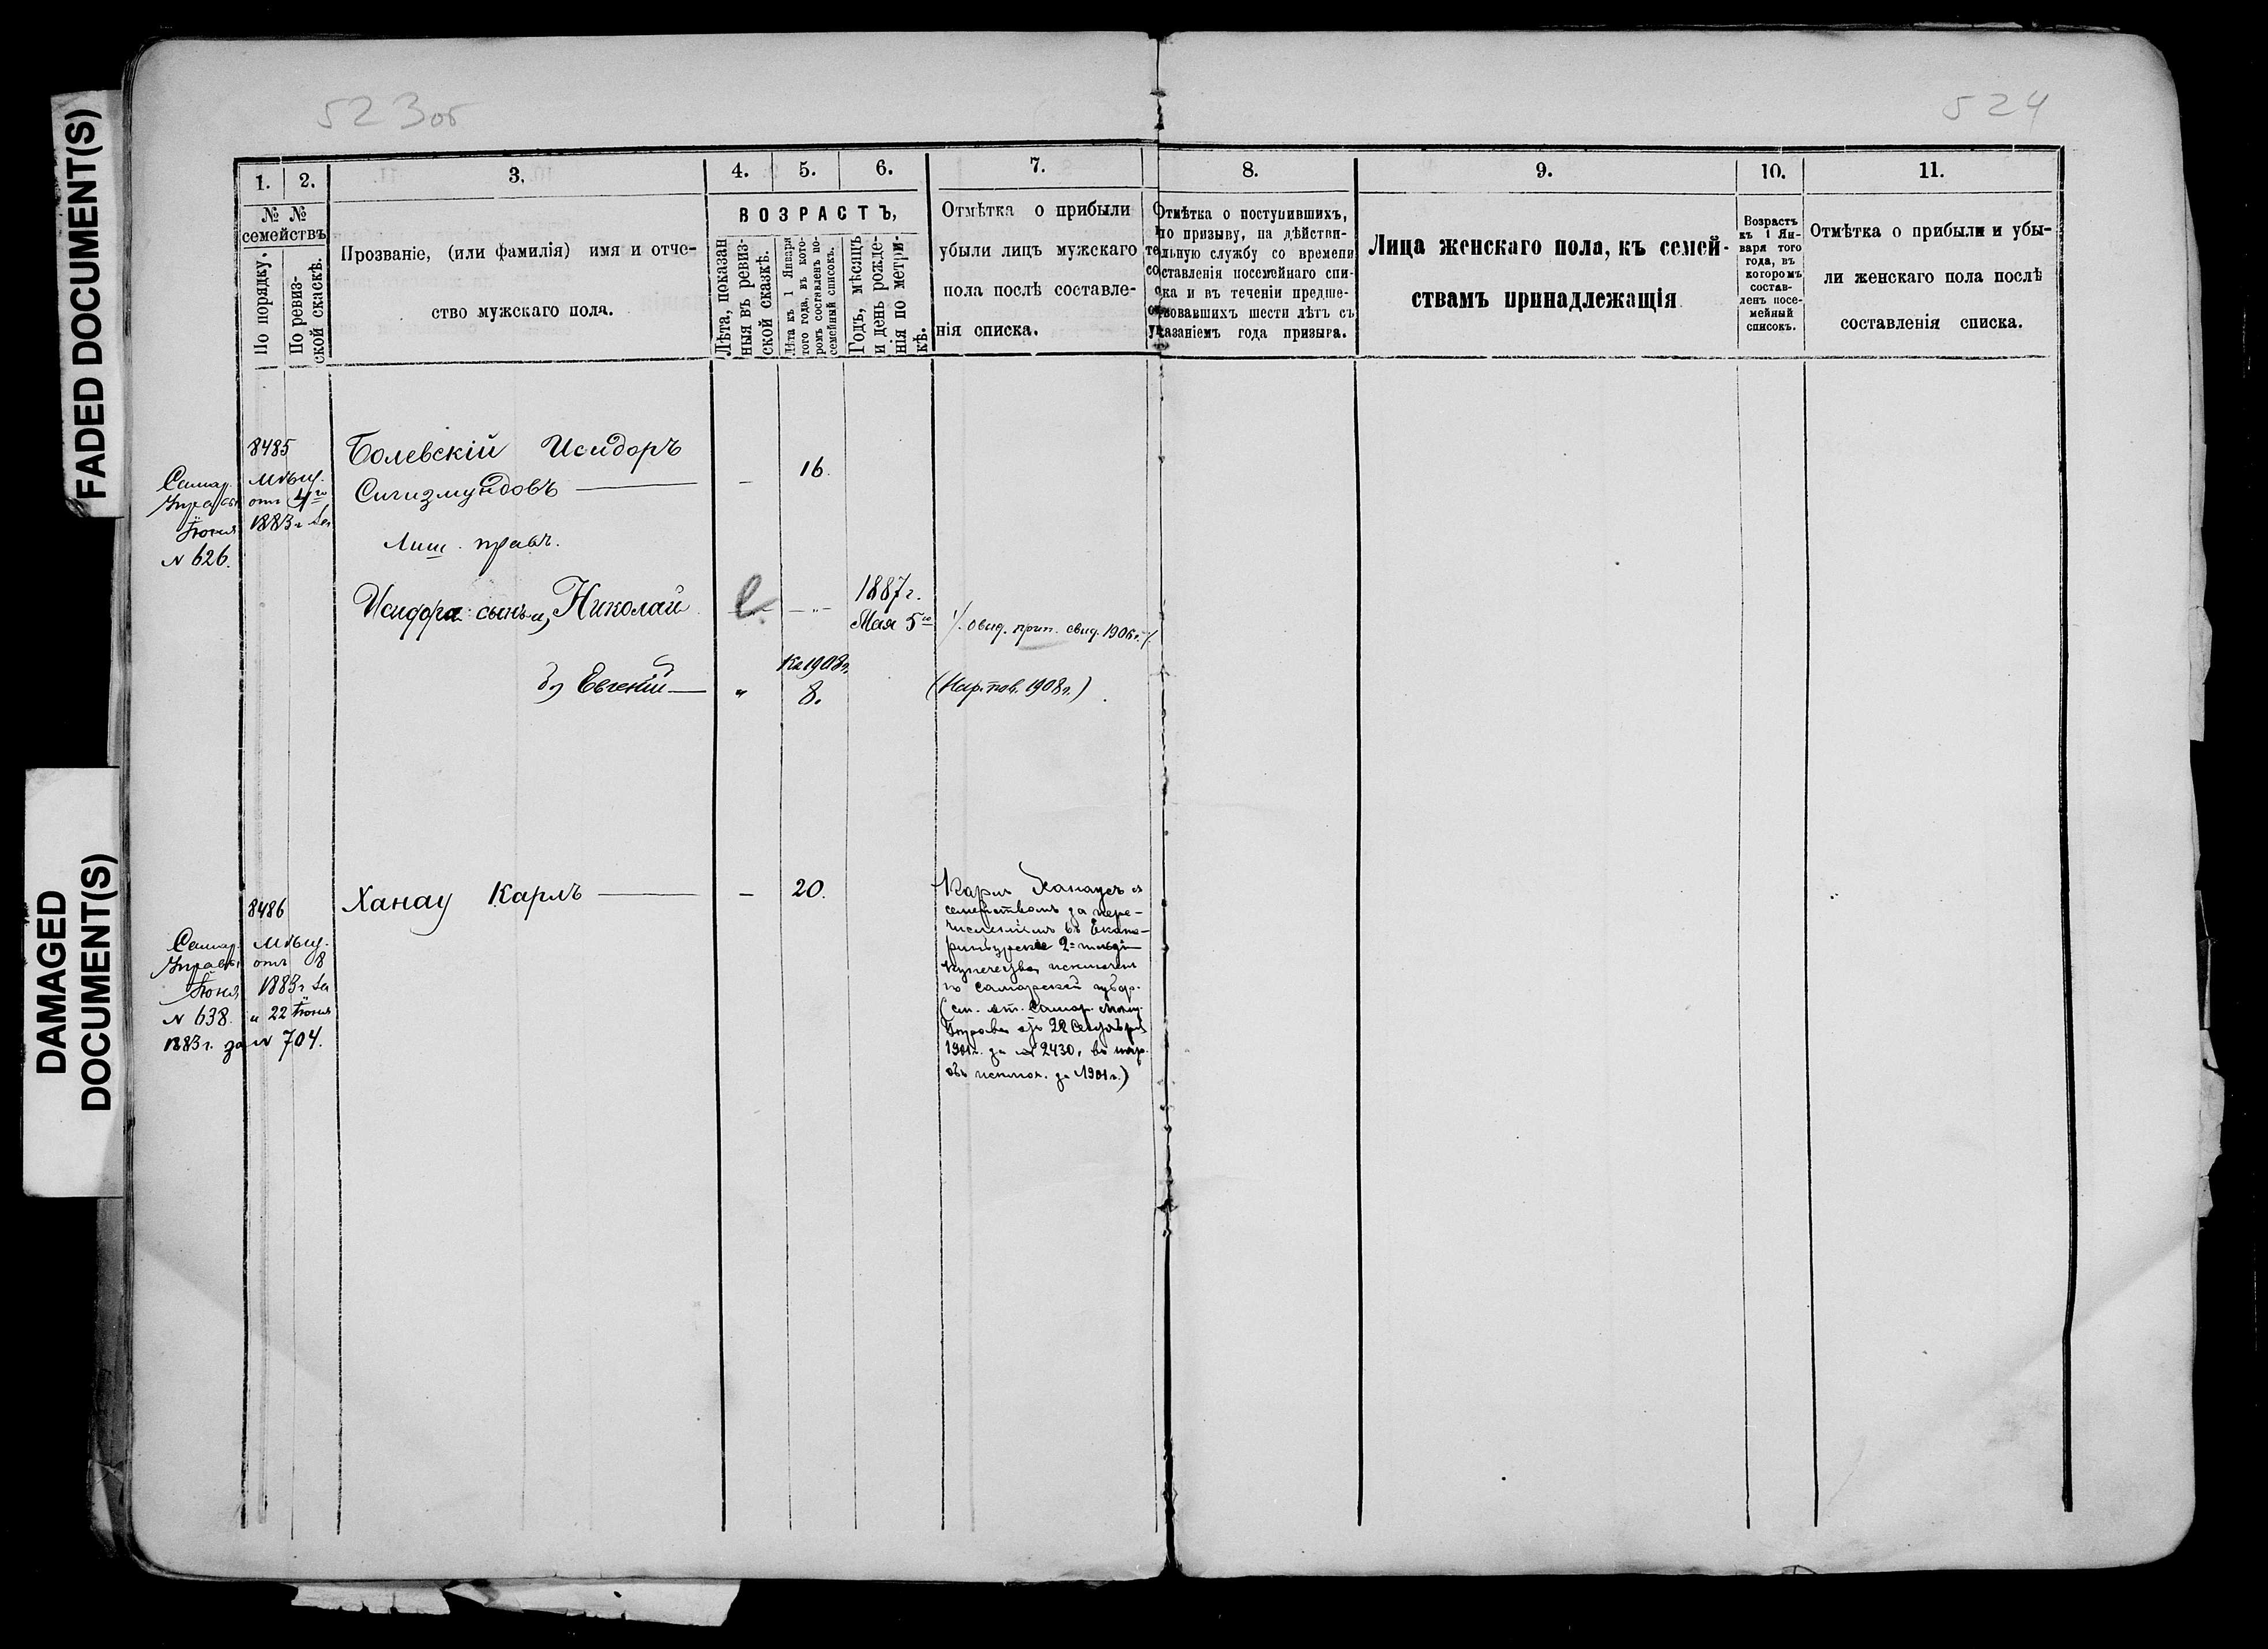 FADED DOCUMENT(S)
DAMAGED
DOCUMENT(S)
523об
524
1.
2.
3.
4.
5.
6.
7.
8.
9.
10.
11.
№ №
семействъ
По порядку.
По ревиз-
ской скаскѣ.
Прозваніе, (или фамилія) имя и отче-
ство мужскаго пола.
ВОЗРАСТЪ,
Лѣта, показан
ныя въ ревиз-
ской сказкѣ.
Лѣта къ 1 Января
того года, въ кото-
ромъ составленъ по-
семейный списокъ.
Годъ, мѣсяцъ
и день рожде-
нія по метри-
кѣ.
Отмѣтка о прибыли
убыли лицъ мужскаго
пола послѣ составле-
нія списка.
Отмѣтка о поступившихъ,
по призыву, на дѣйстви-
тельную службу со времени
составленія посемейнаго спи-
ска и въ теченіи предше-
ствовавшихъ шести лѣтъ съ
указаніемъ года призыва.
Лица женскаго пола, къ семей-
ствамъ принадлежащія
Возрастъ
къ 1 Ян-
варя того
года, въ
которомъ
состав-
ленъ посе-
мейный
списокъ.
Отмѣтка о прибыли и убы-
ли женскаго пола послѣ
составленія списка.
8485
Самар. Мѣщ.
Управы отъ 4го
Іюня 1883г за
№ 626.
Болевскій Исидоръ
Сигизмундовъ
—
16.
Лиш. правъ.
Исидора сынъ, Николай
1887г.
Мая 5го
свид. прип. свид. 1906г.
Къ 1908г.
2) Евгеній
"
8.
(Нар. пов. 1908г.)
8486
Самар. Мѣщ.
Управы отъ 8
Іюня 1883г за
№ 638. и 22 Іюня
1883г. за № 704.
Ханау Карлъ
—
20.
Карлъ Ханау съ
семействомъ за пере-
численіемъ въ Екате-
ринбургское 2й гильдіи
купечество исключенъ
по Самарской губер.
(сп. от. Самар. Мѣщ.
Управы отъ 22 Сентября
1901г. за № 2430, въ нар.
объ исключ. за 1901г.)